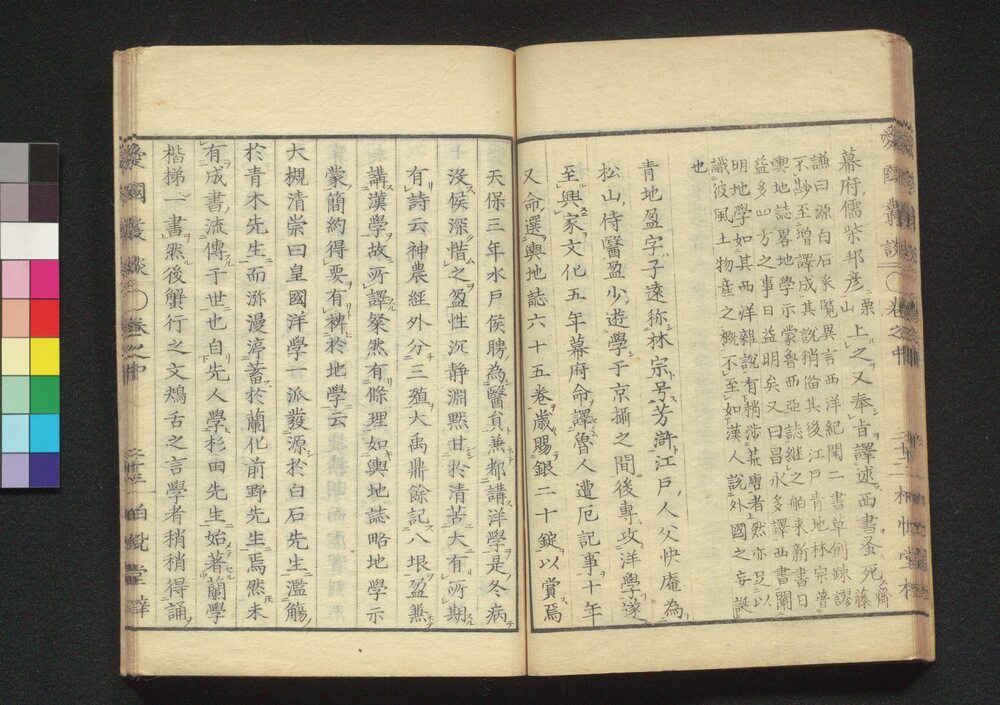 愛國叢談 〇卷之中
幕府儒柴邦彦栗山上之又奉旨譯述西書蚤死齋藤
謙曰源白石采覧異言西洋紀聞二書草創踈謬
不尠至増譯成其說稍備其後江戸青地林宗著
輿地誌畧地學示蒙魯西亞誌継之舶来新書日
益多四方之事日益明矣又曰昌永多譯西書闡
明地學如其西洋雜説有稍涉荒唐者然亦足以
識彼風土物産之概不至如漢人說外國之妄誕
也
青地盈字子遠称林宗号芳滸江戸人父快庵為
松山侍醫盈少遊學于京攝之間後專攻洋學遂
至興家文化五年幕府命譯魯人遭厄記事十年
又命選輿地誌六十五巻歳賜銀二十錠以賞焉
天保三年水戸侯聘為醫員兼都講洋學是冬病
没侯深惜之盈性沉静淵黙甘於清苦大有所期
有詩云神農經外分三殖大禹鼎餘記八垠盈無
講漢學故所譯粲然有條理如輿地誌略地學示
蒙簡約得要有裨於地學云
大槻清崇曰皇國洋學一派發源於白石先生濫觴
於青木先生而滁漫渟蓄於蘭化前野先生焉然未
有成書流傳于世也自先人學杉田先生始著蘭學
楷梯一書然後蟹行之文鴂舌之言學者稍稍得誦
愛國叢談 〇卷之中